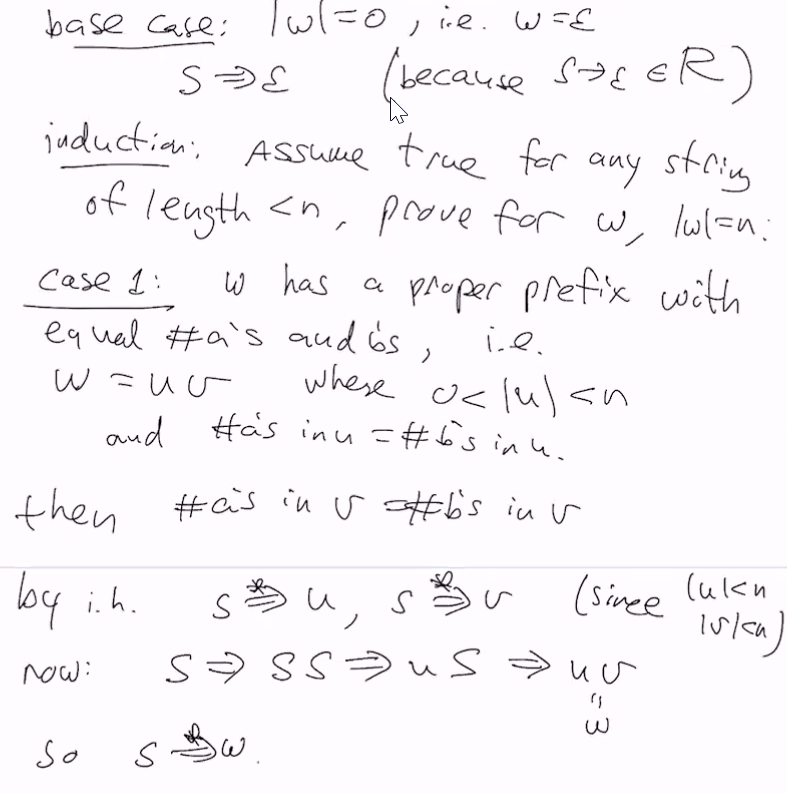 base case: |w|=0, i.e. w=ε
S⇒ε (because S→ε∈R)
induction: Assume true for any string
of length <n, prove for w, |w|=n:
case 1: w has a proper prefix with
equal #a's and b's, i.e.
w = uv where 0<|u|<n
and #a's in u = #b's in u.
then #a's in v = #b's in v
by i.h. S ⇒* u, S ⇒* v (since |u|<n
|v|<n)
now: S ⇒ SS ⇒ uS ⇒ uv
"
w
So S ⇒* w.